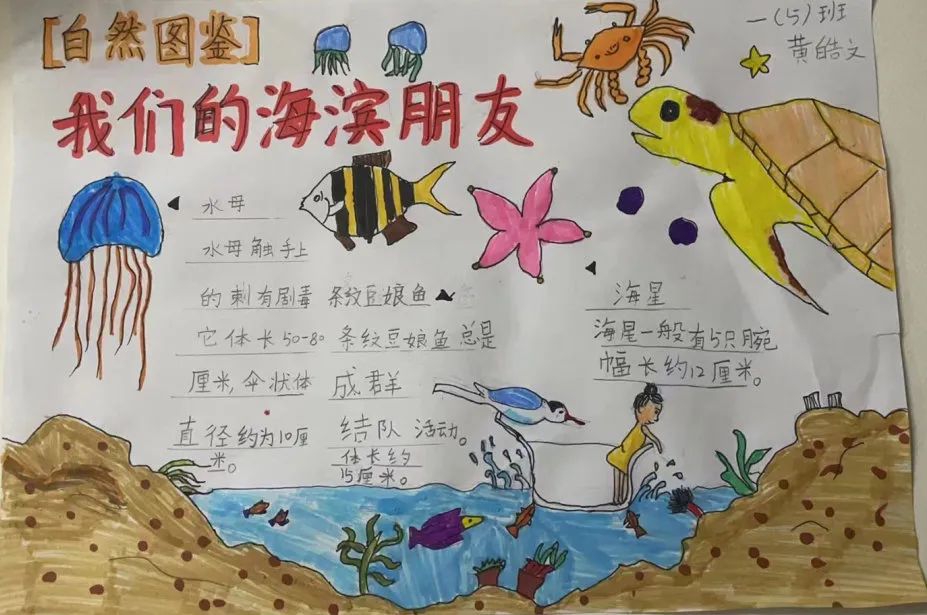 [自然图鉴]
一(5)班
黄皓文
我们的海滨朋友
水母
水母触手上
的刺有剧毒
它体长50-80
厘米,伞状体
直径约为10厘
米。
条纹豆娘鱼
条纹豆娘鱼总是
成群
结队活动。
体长约
15厘米。
海星
海星一般有5只腕
幅长约12厘米。